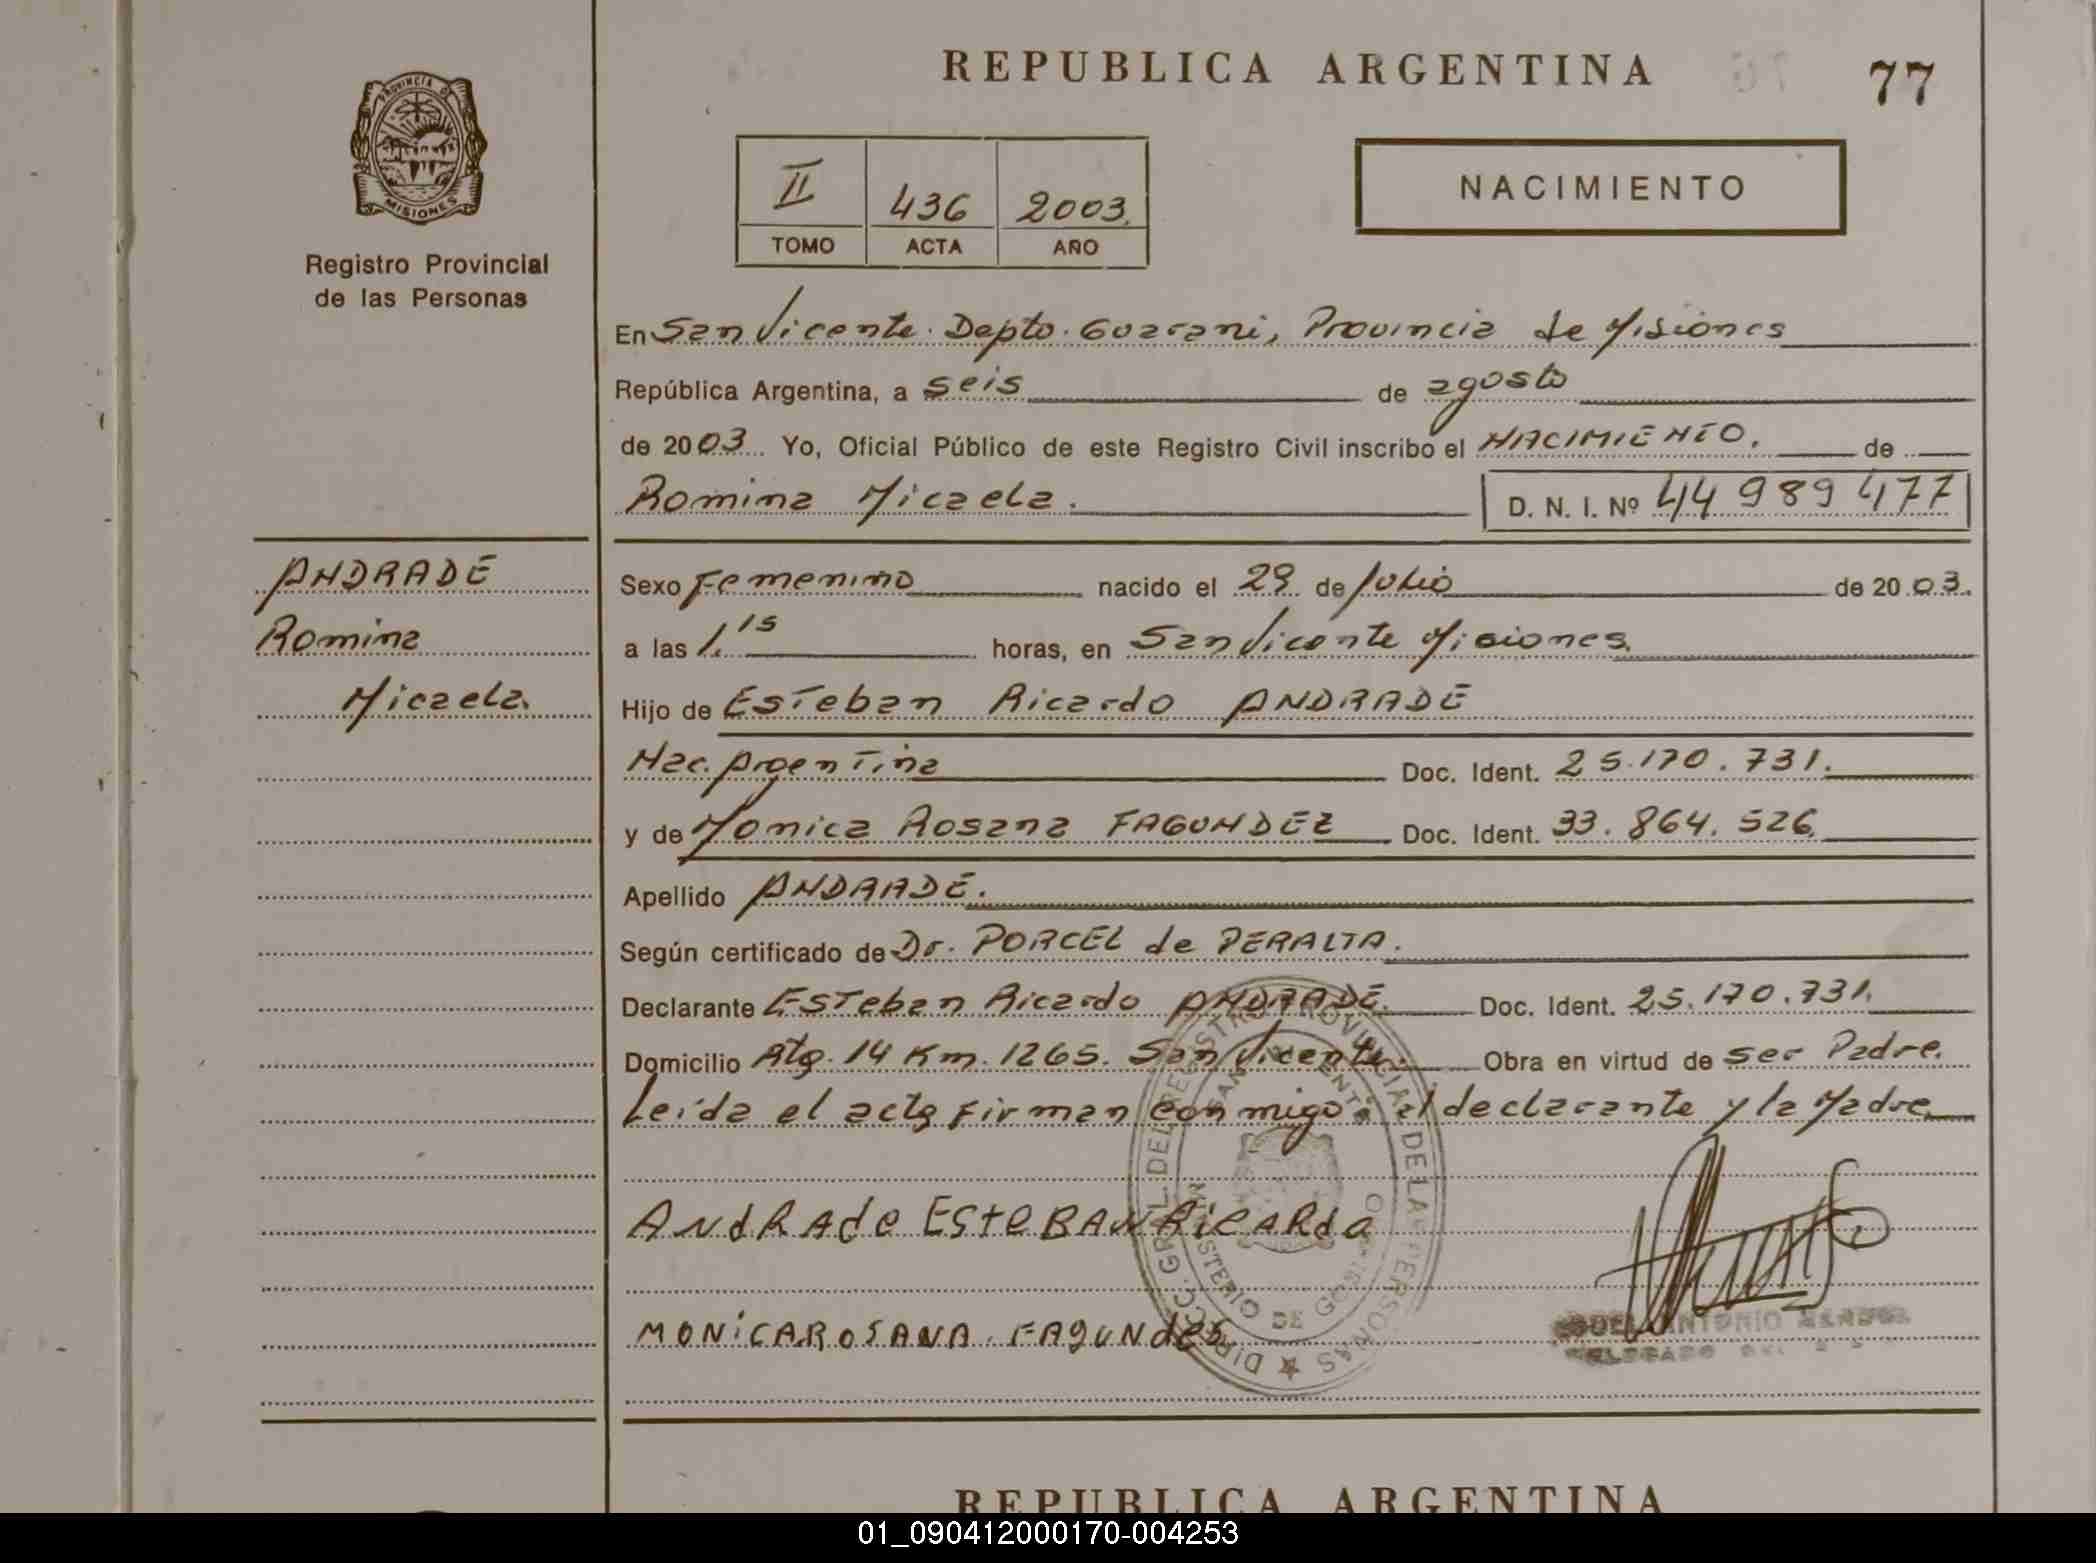 REPUBLICA ARGENTINA
77
PROVINCIA DE
MISIONES
Registro Provincial
de las Personas
II 436 2003.
TOMO ACTA AÑO
NACIMIENTO
En San Vicente. Depto. Guarani, Provincia de Misiones
República Argentina, a seis de agosto
de 2003 Yo, Oficial Público de este Registro Civil inscribo el NACIMIENTO. de
Romina Micaela. D. N. I. Nº 44 989 477
ANDRADE
Romina
Micaela.
Sexo Femenino nacido el 29 de Julio de 2003.
a las 1.15 horas, en San Vicente Misiones.
Hijo de Esteban Ricardo ANDRADE
Nac. Argentina Doc. Ident. 25.170.731.
y de Monica Rosana FAGUNDEZ Doc. Ident. 33.864.526.
Apellido ANDRADE.
Según certificado de Dr. PORCEL de PERALTA.
Declarante Esteban Ricardo ANDRADE. Doc. Ident. 25.170.731.
Domicilio Rta. 14 Km. 1265. San Vicente. Obra en virtud de ser Padre.
Leída el acta firman conmigo el declarante y la Madre.
ANdRAde EsteBAN RicARdo
MONiCA ROSANA FAgUNdes
DIRECC. GRAL. DEL REGISTRO PROVINCIAL DE LAS PERSONAS
SAN VICENTE
MINISTERIO DE GOBIERNO
ANTONIO
REPUBLICA ARGENTINA
01_090412000170-004253